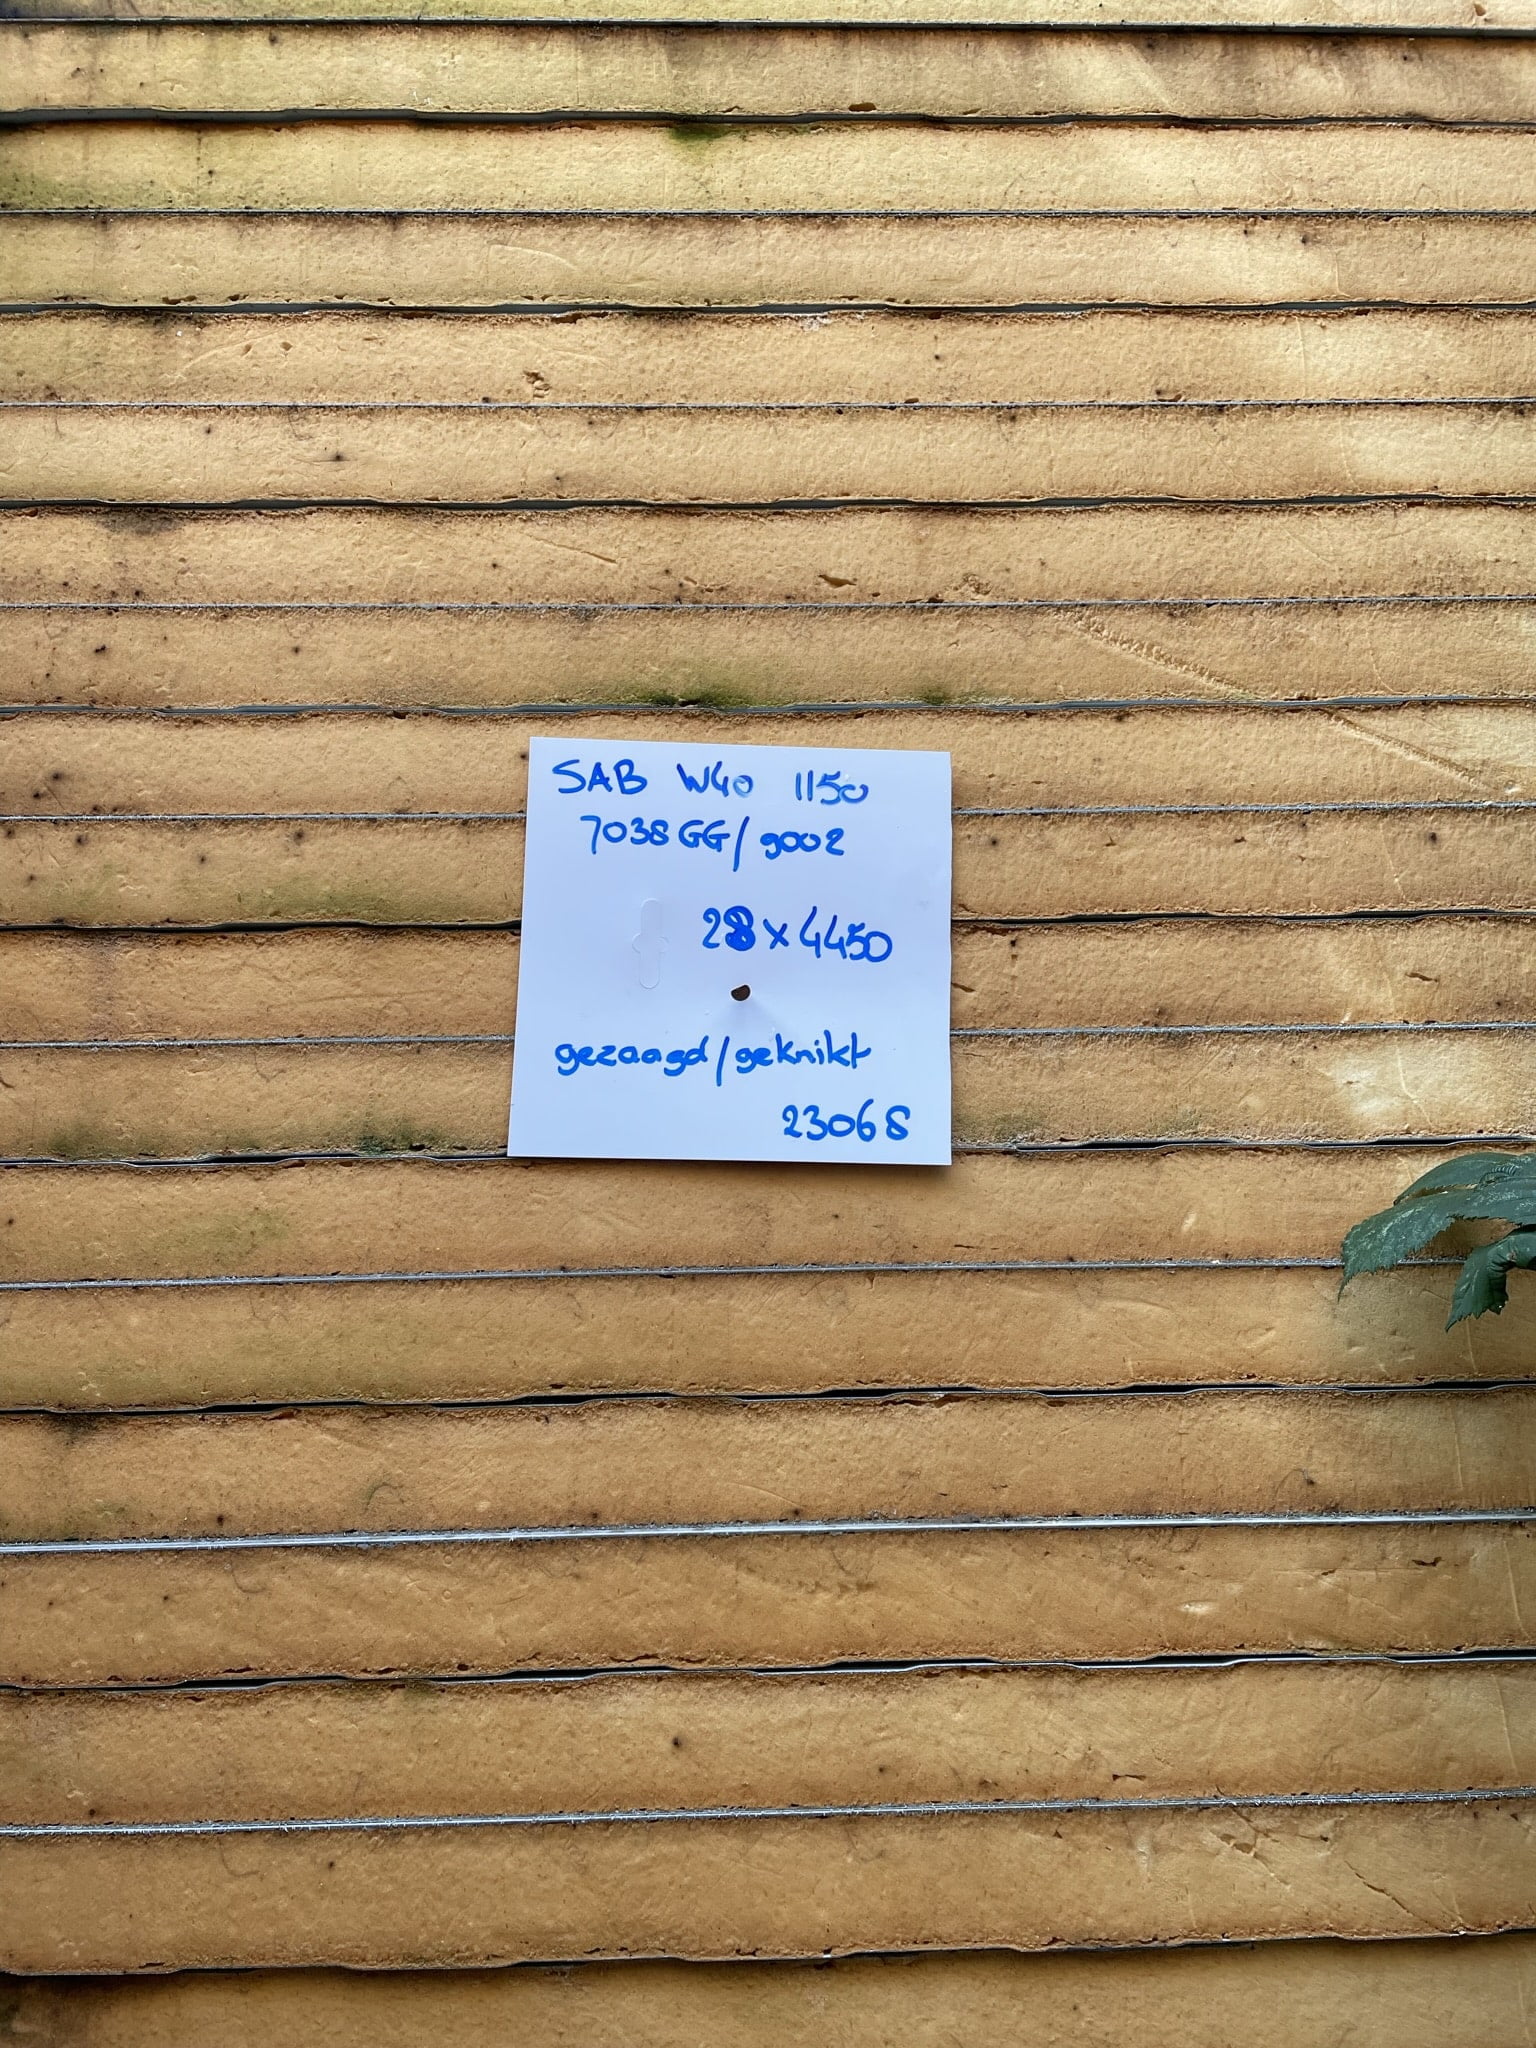 SAB W40 1150
7038GG/9002
28x4450
gezaagd/geknikt
23068